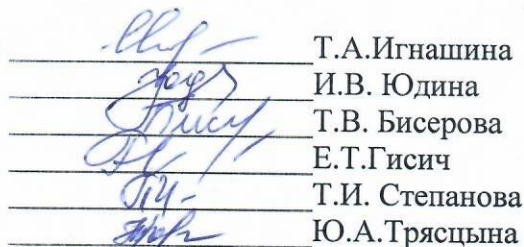 Т.А.Игнашина
И.В. Юдина
Т.В. Бисерова
Е.Т.Гисич
Т.И. Степанова
Ю.А.Трясцына